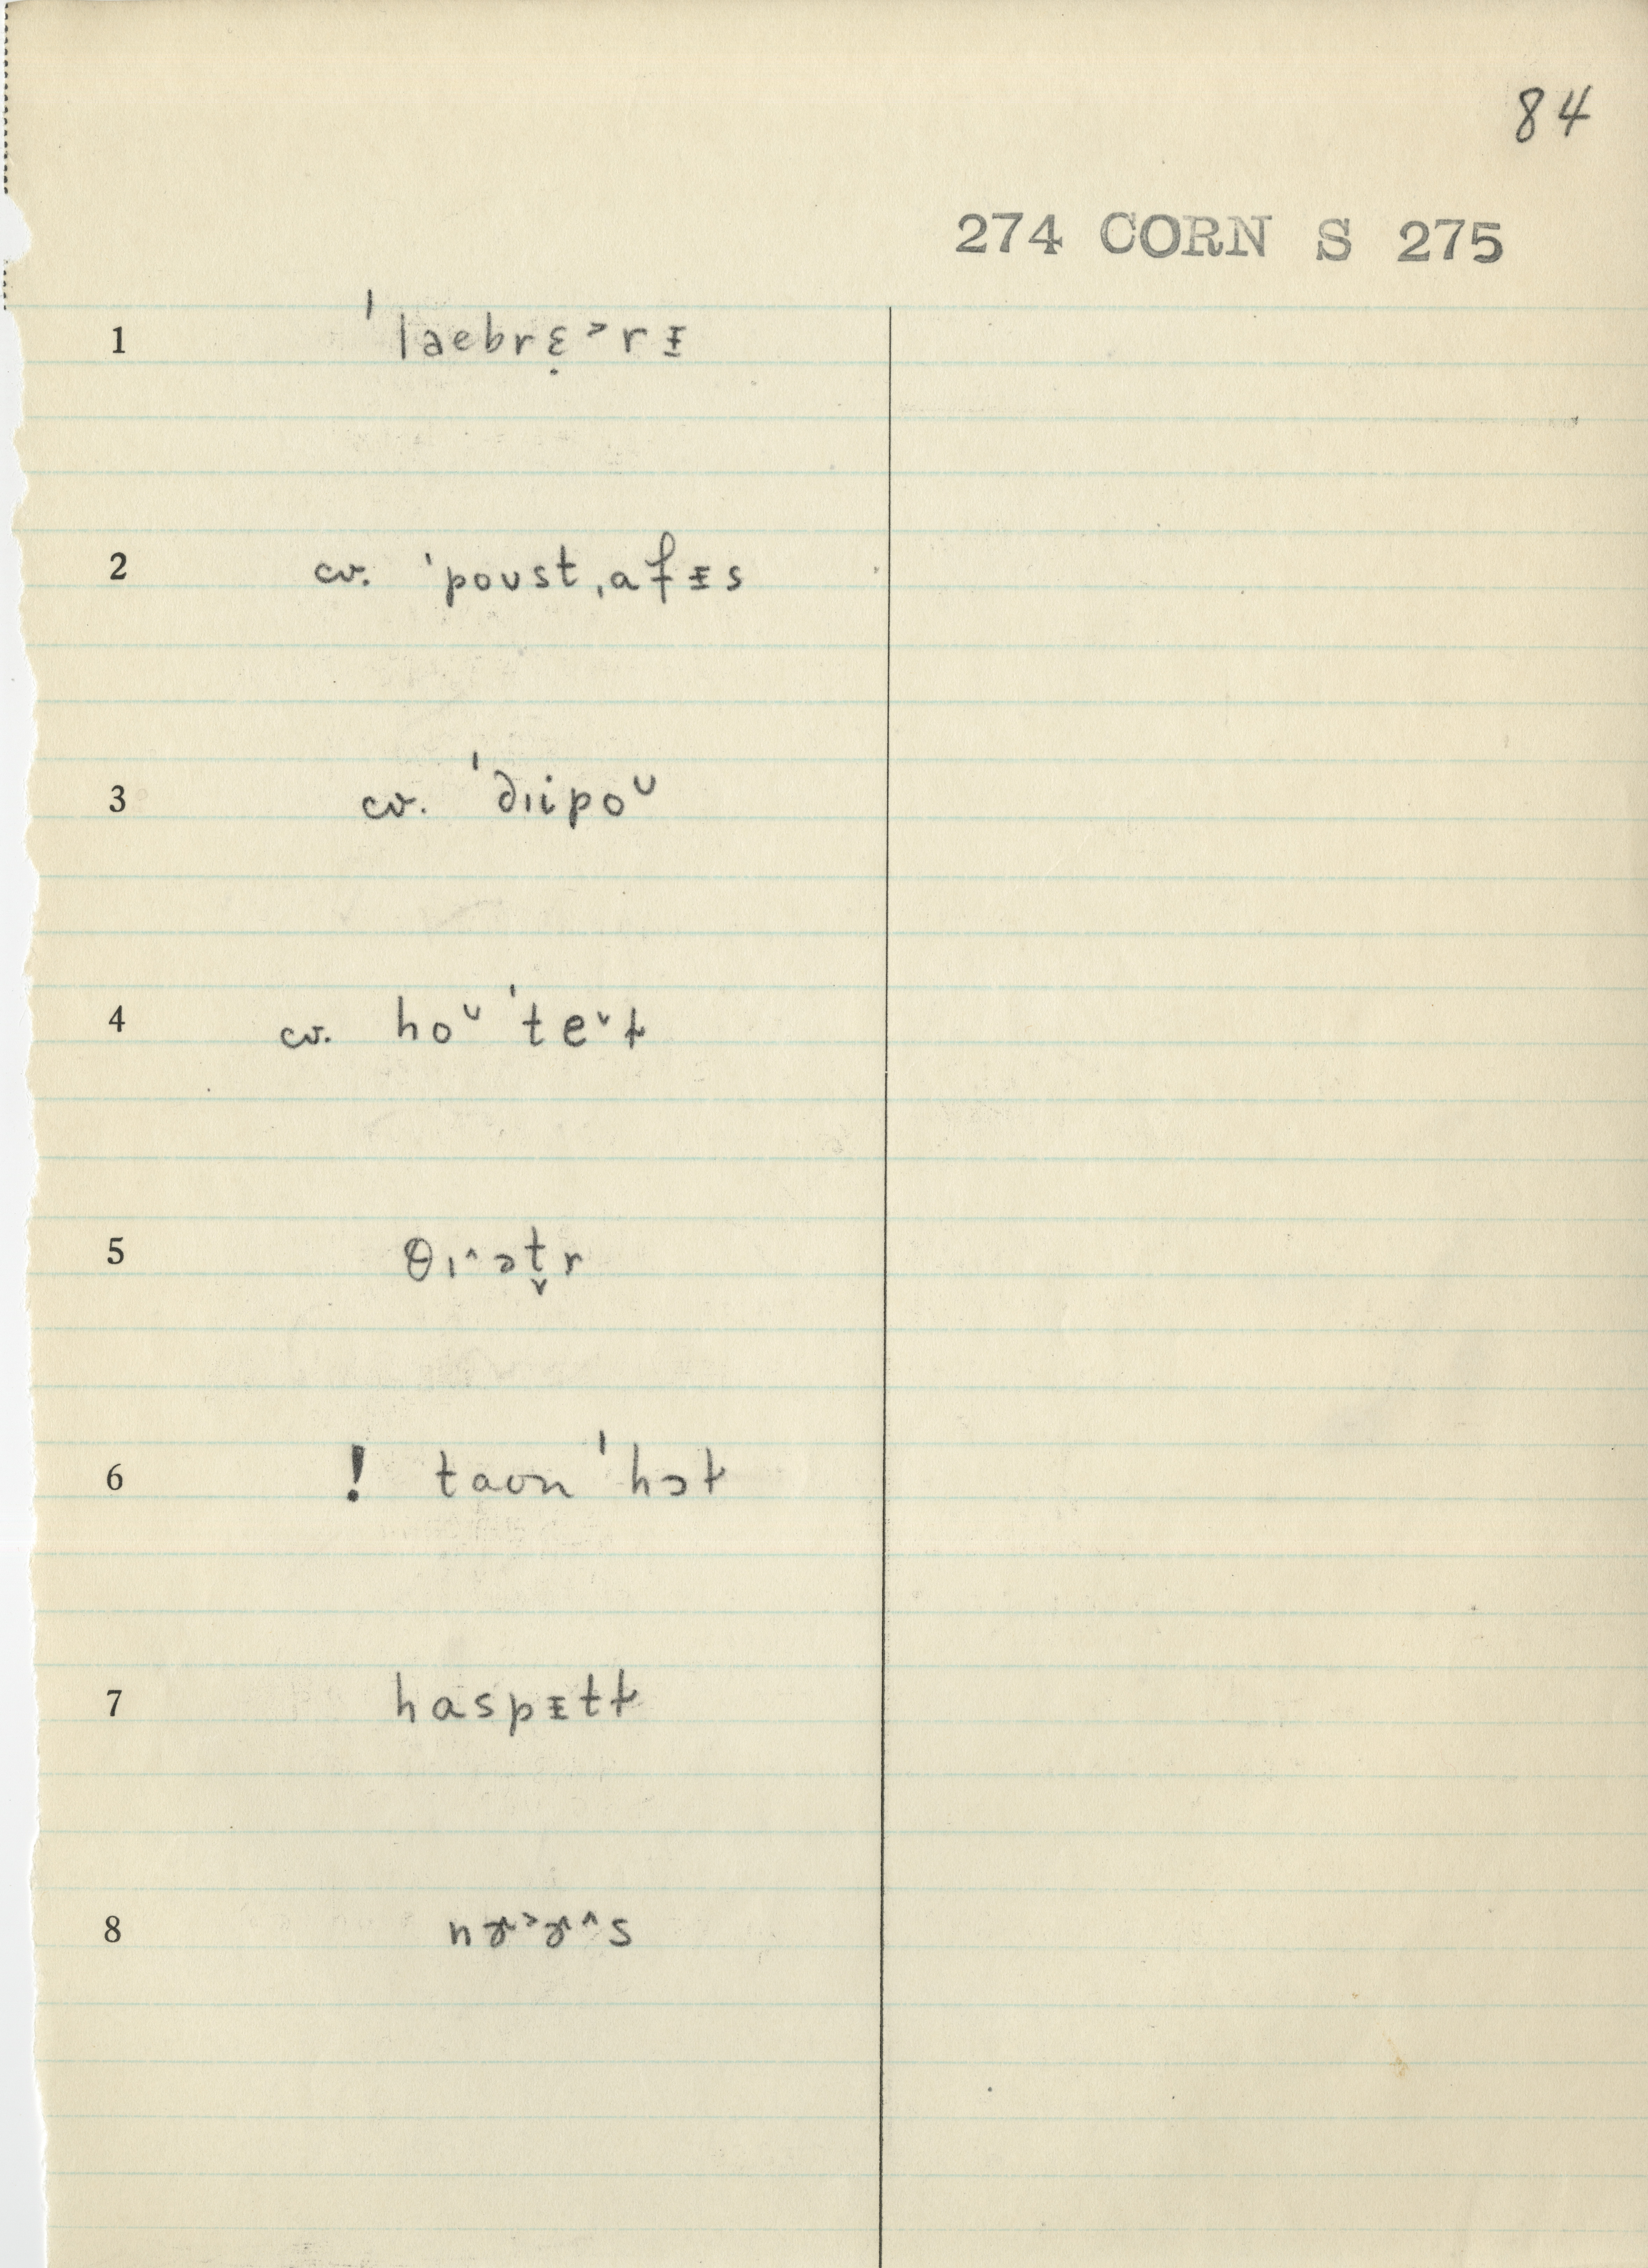 84
274 CORN S 275
1 ˈlaebrɛ̣˃rᵻ
2 cv. ˈpoʊstˌafᵻs
3 cv. ˈdɪipoᴗ
4 cv. hoᴗˈte˅ɫ
5 θɪ˄ət̬r
6 ! taʊnˈhɔɫ
7 haspᵻtɫ
8 nɚ˃ɚ˄s